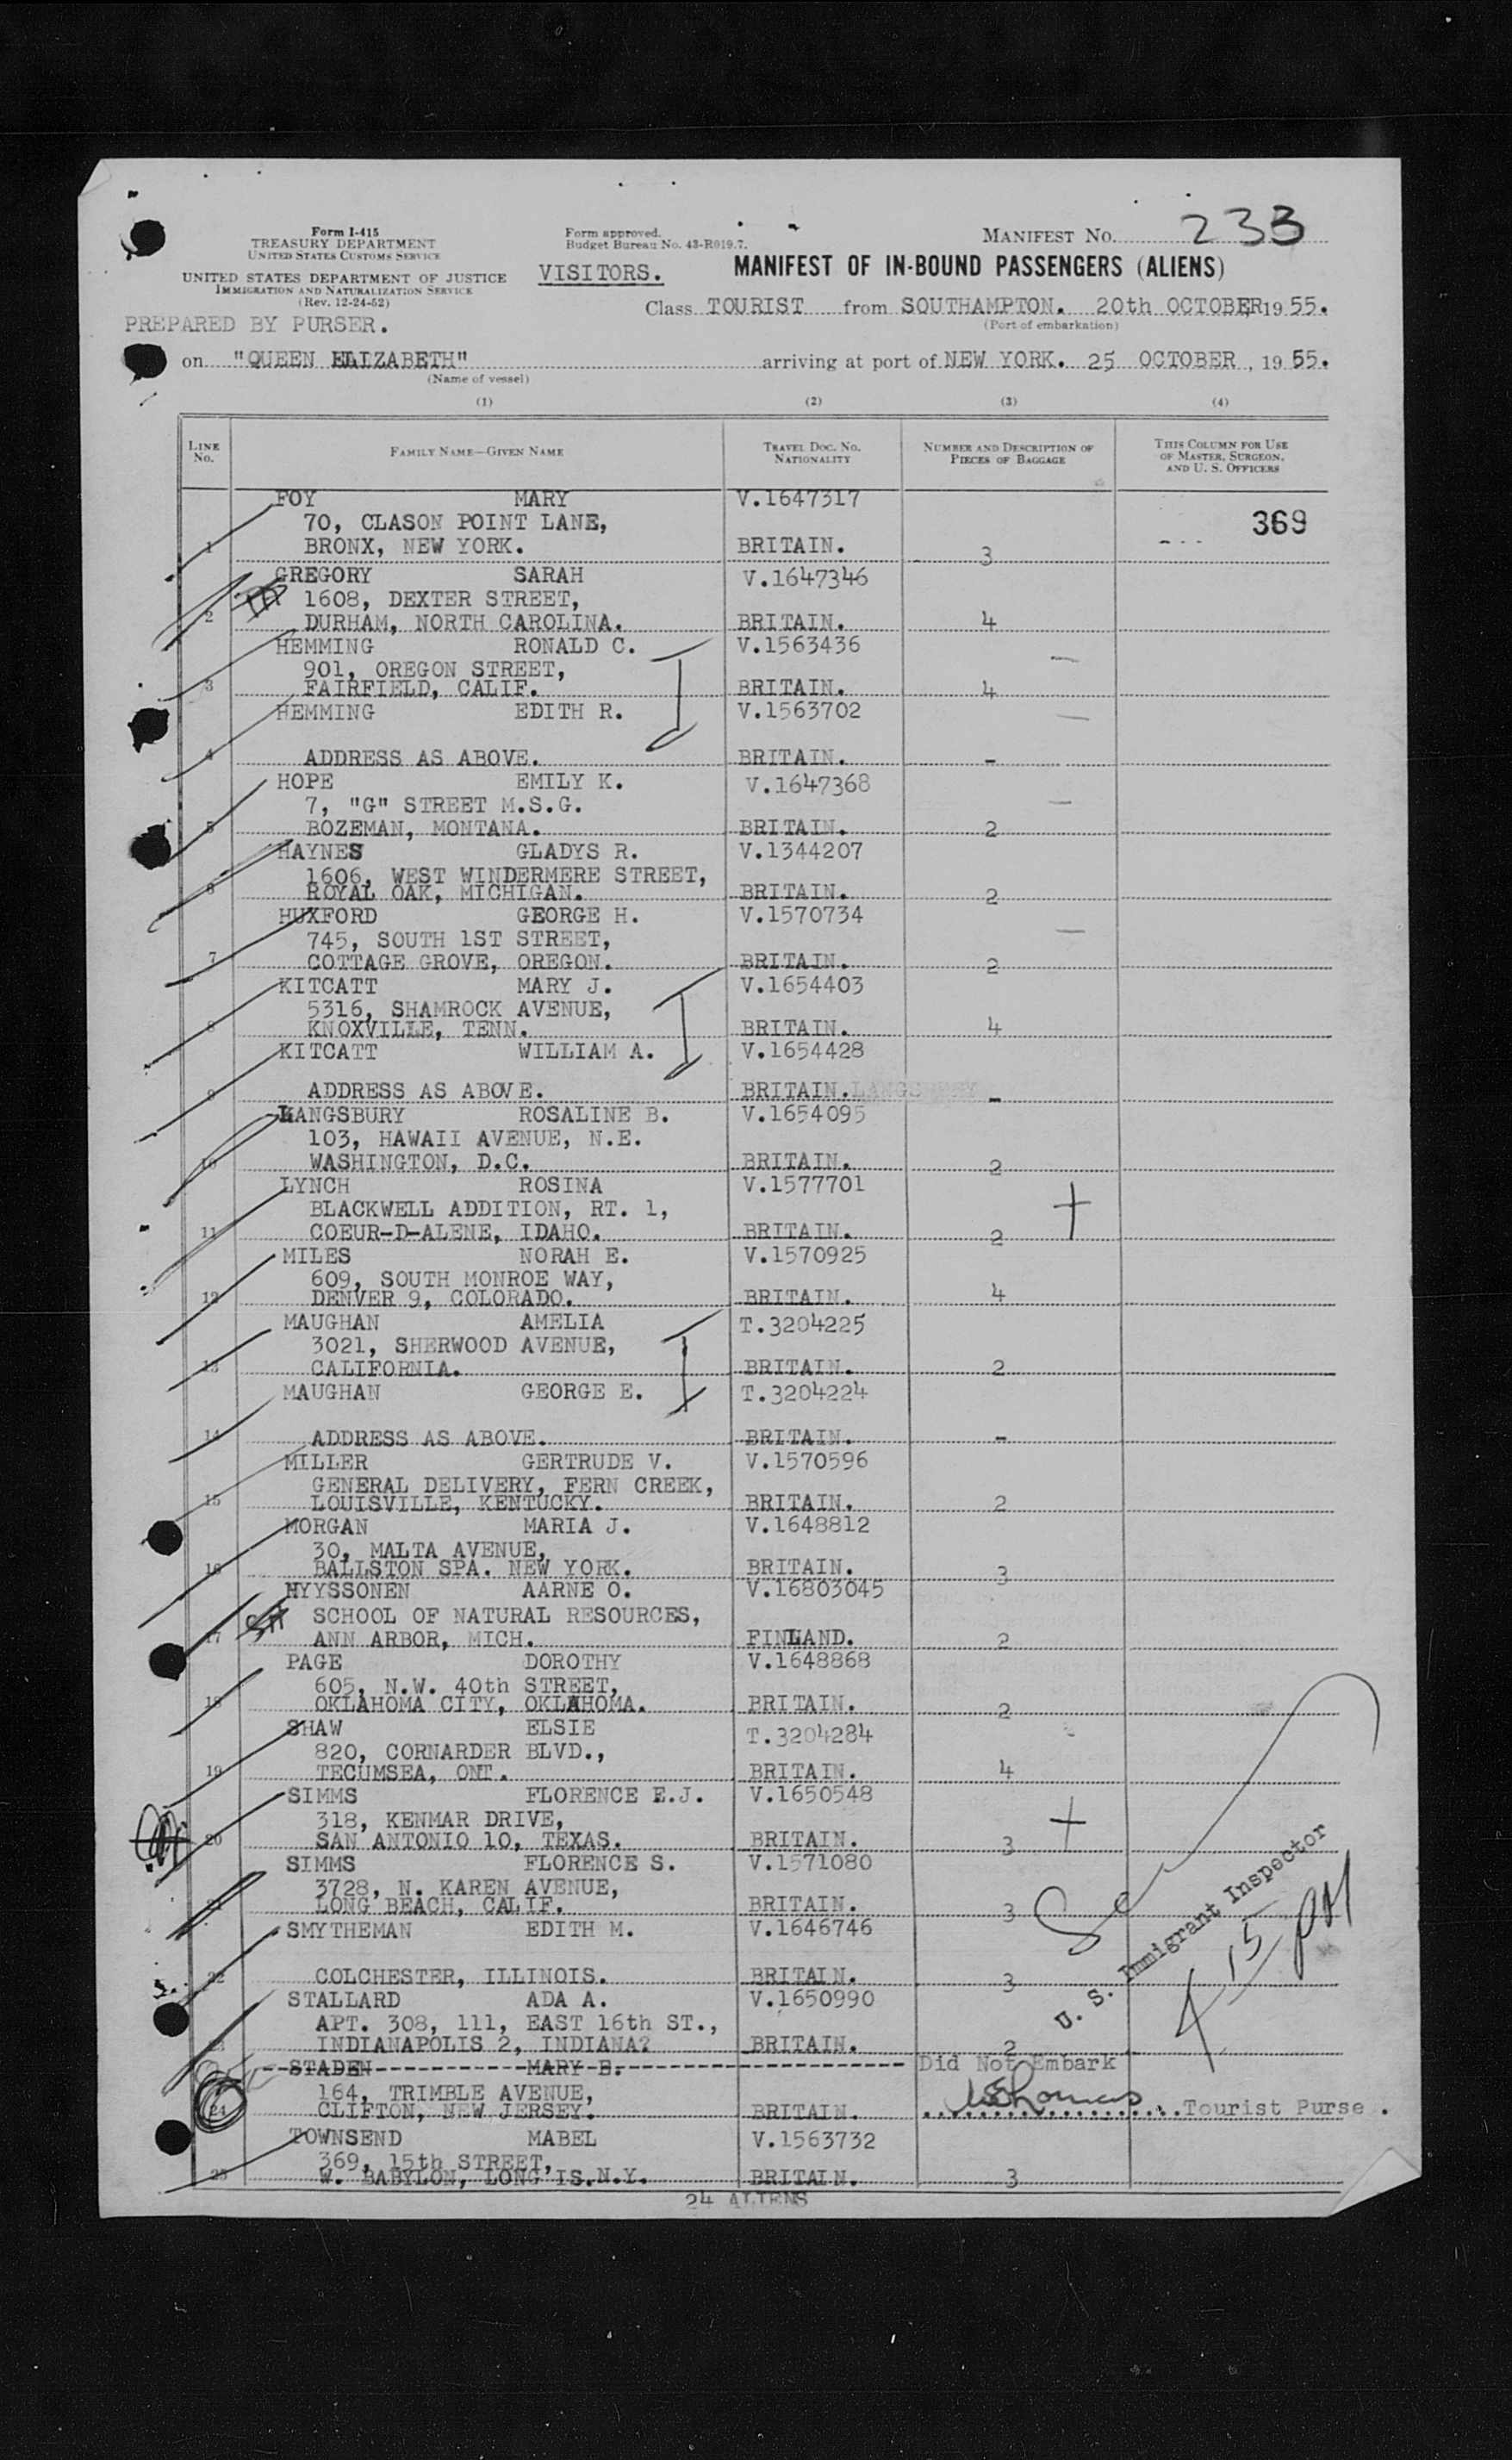 Form I-415
TREASURY DEPARTMENT
UNITED STATES CUSTOMS SERVICE
UNITED STATES DEPARTMENT OF JUSTICE
IMMIGRATION AND NATURALIZATION SERVICE
(Rev. 12-24-52)
PREPARED BY PURSER.
Form approved.
Budget Bureau No. 43-R019.7.
VISITORS.
MANIFEST NO. 233
MANIFEST OF IN-BOUND PASSENGERS (ALIENS)
Class TOURIST from SOUTHAMPTON. 20th OCTOBER, 1955.
(Port of embarkation)
on "QUEEN ELIZABETH" arriving at port of NEW YORK. 25 OCTOBER, 1955.
(Name of vessel)
(1) (2) (3) (4)
LINE No. FAMILY NAME—GIVEN NAME TRAVEL DOC. NO. NATIONALITY NUMBER AND DESCRIPTION OF PIECES OF BAGGAGE THIS COLUMN FOR USE OF MASTER, SURGEON, AND U. S. OFFICERS
FOY MARY V.1647317
70, CLASON POINT LANE, 369
1 BRONX, NEW YORK. BRITAIN. 3
GREGORY SARAH V.1647346
1608, DEXTER STREET,
2 DURHAM, NORTH CAROLINA. BRITAIN. 4
HEMMING RONALD C. V.1563436
901, OREGON STREET,
3 FAIRFIELD, CALIF. BRITAIN. 4
HEMMING EDITH R. V.1563702
4 ADDRESS AS ABOVE. BRITAIN. -
HOPE EMILY K. V.1647368
7, "G" STREET M.S.G.
5 BOZEMAN, MONTANA. BRITAIN. 2
HAYNES GLADYS R. V.1344207
1606, WEST WINDERMERE STREET,
6 ROYAL OAK, MICHIGAN. BRITAIN. 2
HUXFORD GEORGE H. V.1570734
745, SOUTH 1ST STREET,
7 COTTAGE GROVE, OREGON. BRITAIN. 2
KITCATT MARY J. V.1654403
5316, SHAMROCK AVENUE,
8 KNOXVILLE, TENN. BRITAIN. 4
KITCATT WILLIAM A. V.1654428
9 ADDRESS AS ABOVE. BRITAIN. -
LANGSBURY ROSALINE B. V.1654095
103, HAWAII AVENUE, N.E.
10 WASHINGTON, D.C. BRITAIN. 2
LYNCH ROSINA V.1577701
BLACKWELL ADDITION, RT. 1,
11 COEUR-D-ALENE, IDAHO. BRITAIN. 2
MILES NORAH E. V.1570925
609, SOUTH MONROE WAY,
12 DENVER 9, COLORADO. BRITAIN. 4
MAUGHAN AMELIA T.3204225
3021, SHERWOOD AVENUE,
13 CALIFORNIA. BRITAIN. 2
MAUGHAN GEORGE E. T.3204224
14 ADDRESS AS ABOVE. BRITAIN. -
MILLER GERTRUDE V. V.1570596
GENERAL DELIVERY, FERN CREEK,
15 LOUISVILLE, KENTUCKY. BRITAIN. 2
MORGAN MARIA J. V.1648812
30, MALTA AVENUE,
16 BALLSTON SPA. NEW YORK. BRITAIN. 3
NYYSSONEN AARNE O. V.16803045
SCHOOL OF NATURAL RESOURCES,
17 ANN ARBOR, MICH. FINLAND. 2
PAGE DOROTHY V.1648868
605, N.W. 40th STREET,
18 OKLAHOMA CITY, OKLAHOMA. BRITAIN. 2
SHAW ELSIE T.3204284
820, CORNARDER BLVD.,
19 TECUMSEA, ONT. BRITAIN. 4
SIMMS FLORENCE E.J. V.1650548
318, KENMAR DRIVE,
20 SAN ANTONIO 10, TEXAS. BRITAIN. 3
SIMMS FLORENCE S. V.1571080
3728, N. KAREN AVENUE,
21 LONG BEACH, CALIF. BRITAIN. 3
SMYTHEMAN EDITH M. V.1646746
22 COLCHESTER, ILLINOIS. BRITAIN. 3
U. S. Immigrant Inspector
4 15 PM
STALLARD ADA A. V.1650990
APT. 308, 111, EAST 16th ST.,
23 INDIANAPOLIS 2, INDIANA? BRITAIN. 2
STADEN MARY B. Did Not Embark
164, TRIMBLE AVENUE,
24 CLIFTON, NEW JERSEY. BRITAIN. Tourist Purse .
TOWNSEND MABEL V.1563732
369, 15th STREET,
25 W. BABYLON, LONG IS.N.Y. BRITAIN. 3
24 ALIENS